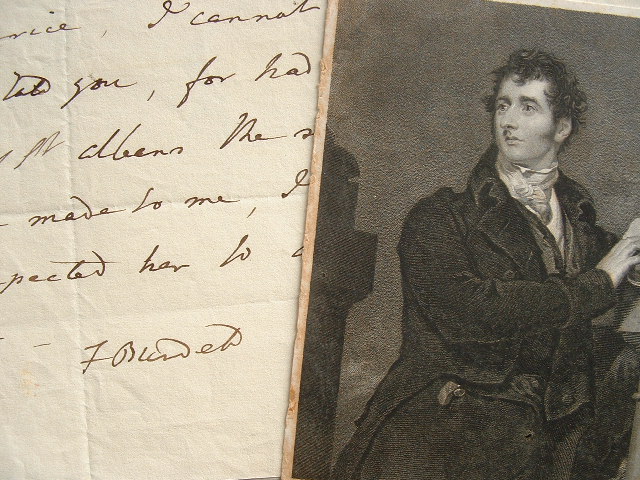 rice, I cannot
told you, for had
St albans the s
made to me, I
pected her to a
F Burdett